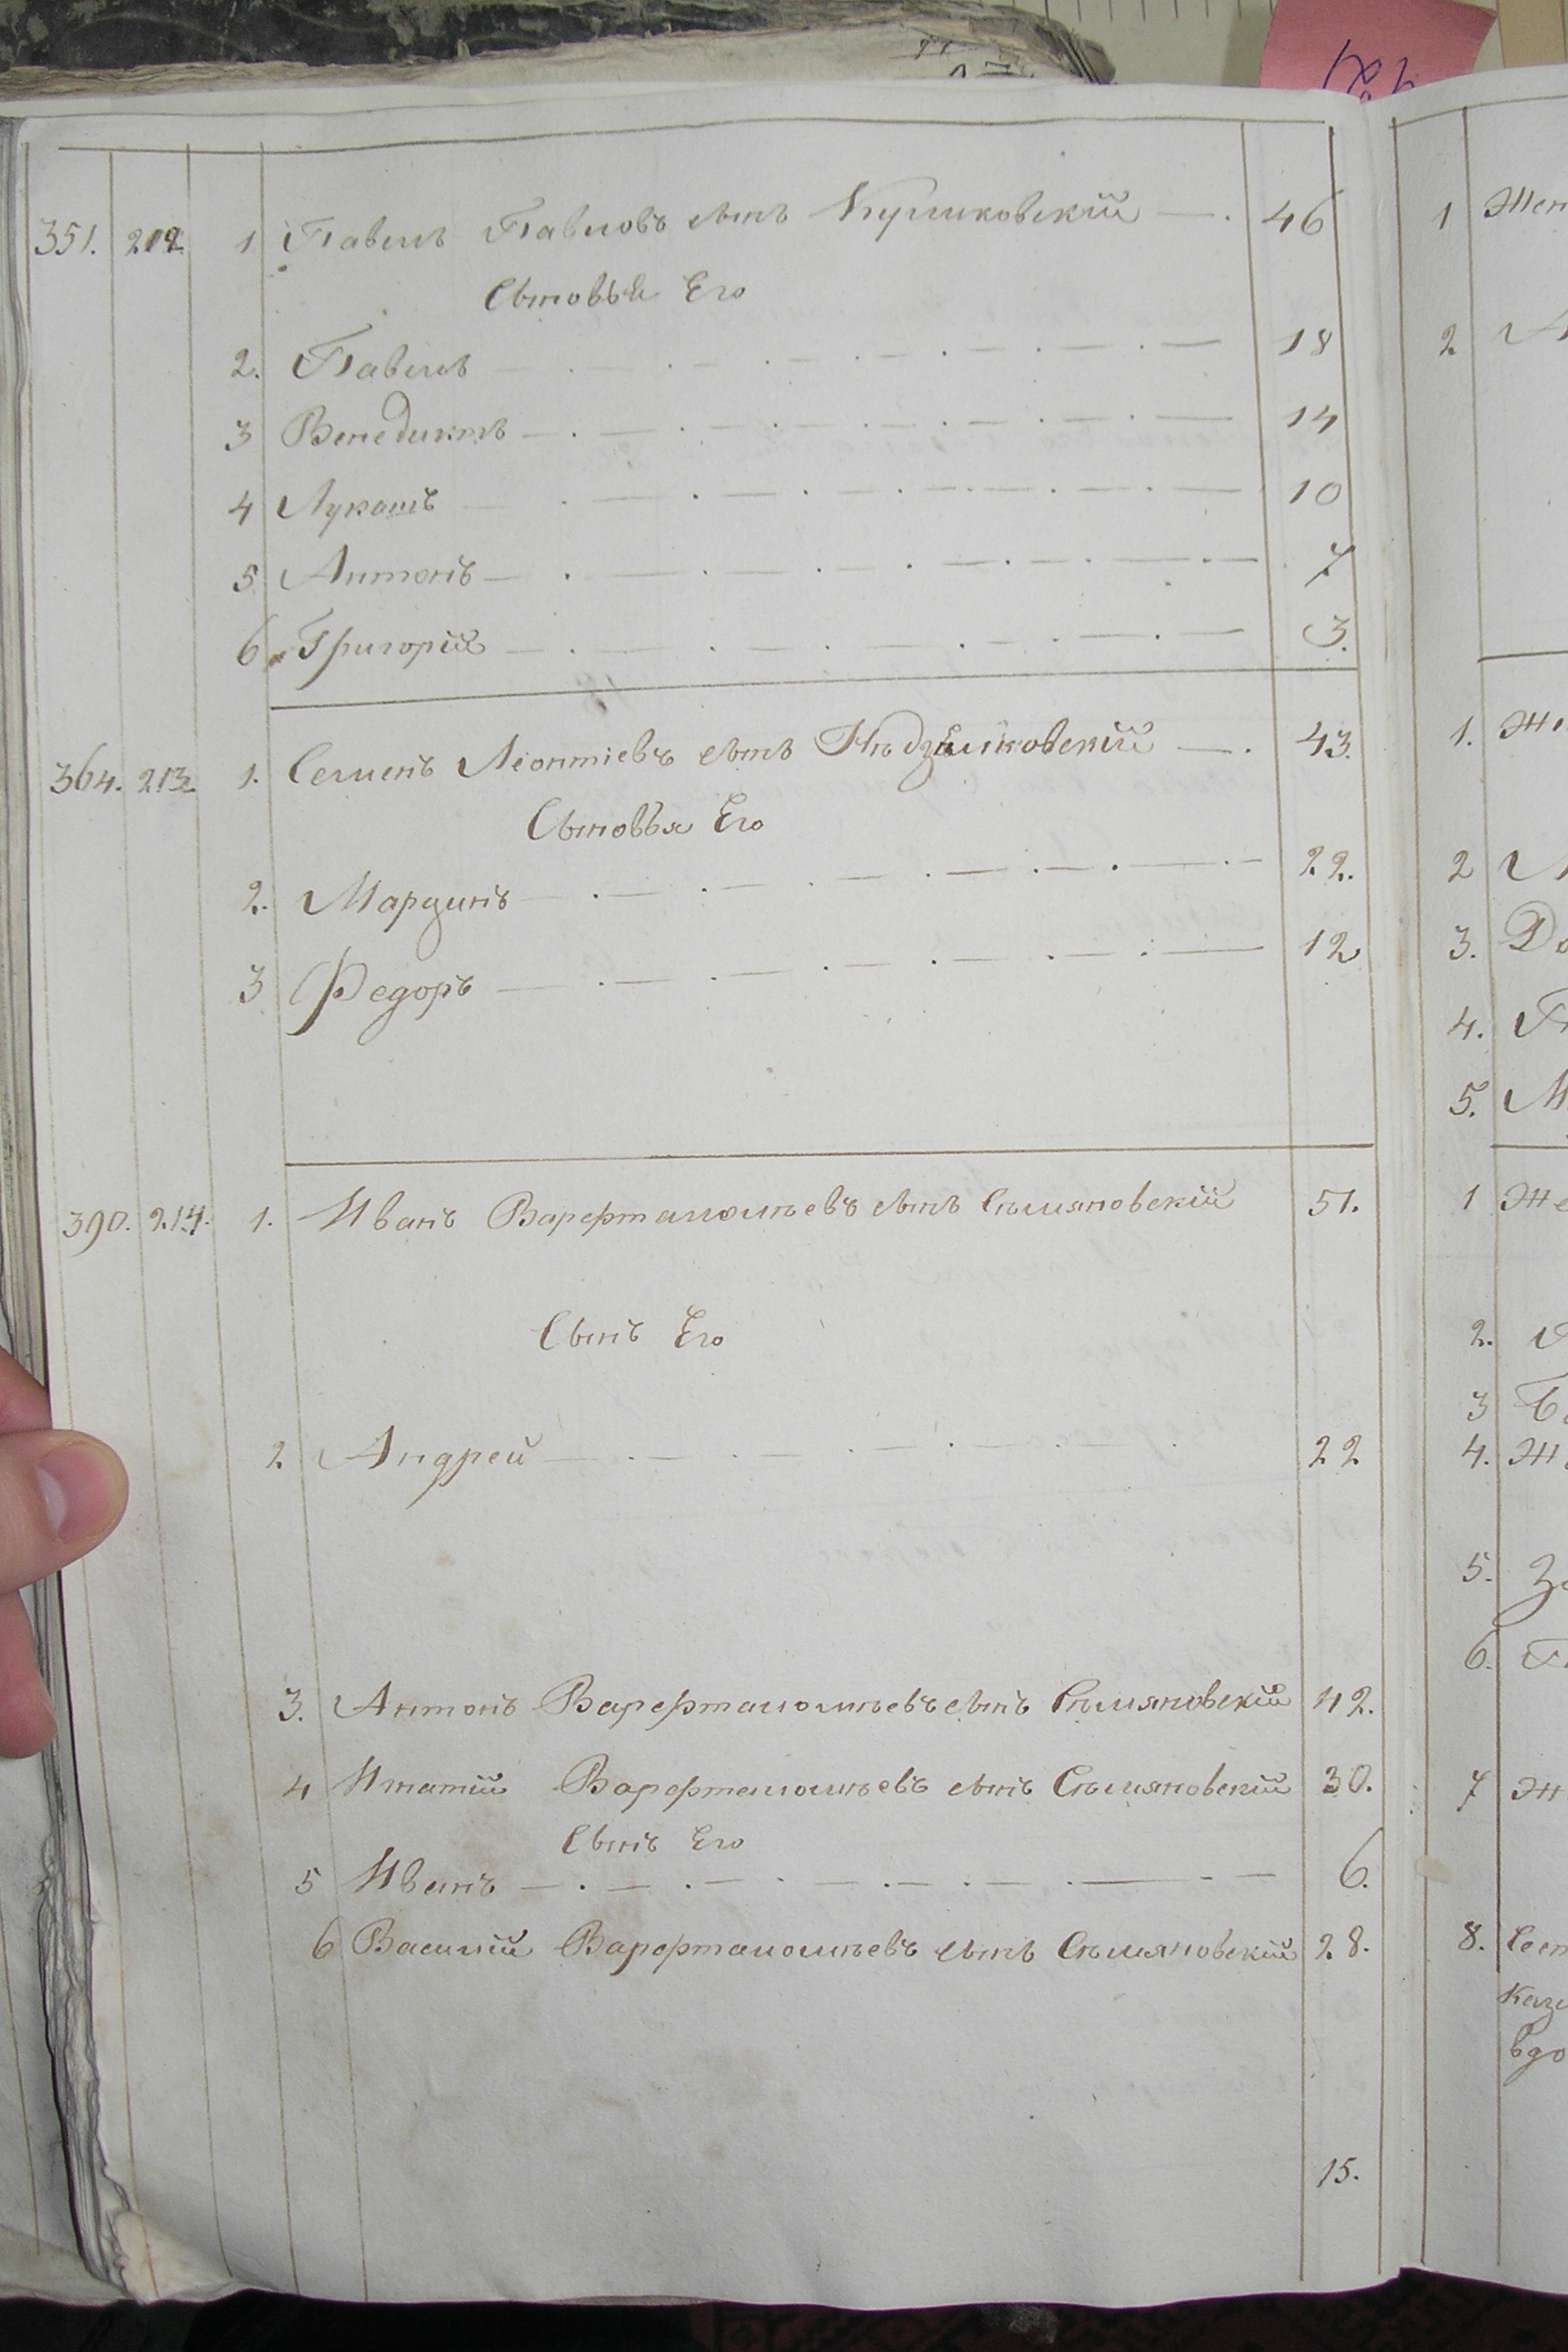 351. 212. 1 Павелъ Павловъ сынъ Куликовскій — . 46
Сыновья Его
2. Павелъ 18
3 Венедиктъ 14
4 Лукашъ 10
5 Антонъ 7
6 Григорій 3.
364. 213. 1. Семенъ Леонтіевъ сынъ 43.
Сыновья Его
2. Марцинъ 22.
3 Федоръ 12
390. 214. 1. Иванъ Варфтоломѣевъ сынъ Сѣмяновскій 51.
Сынъ Его
2. Андрей 22
3. Антонъ Варфтоломѣевъ сынъ Сѣмяновскій 42.
4 Игнатій Варфтоломѣевъ сынъ Сѣмяновскій 30.
Сынъ Его
5 Иванъ 6.
6 Василій Варфтоломѣевъ сынъ Сѣмяновскій 28.
15.
1 Жен
2
1. Же
2
3. До
4.
5. М
1 Же
2.
3
4. Ж
5.
6.
7 Ж
8. Сест
вдо